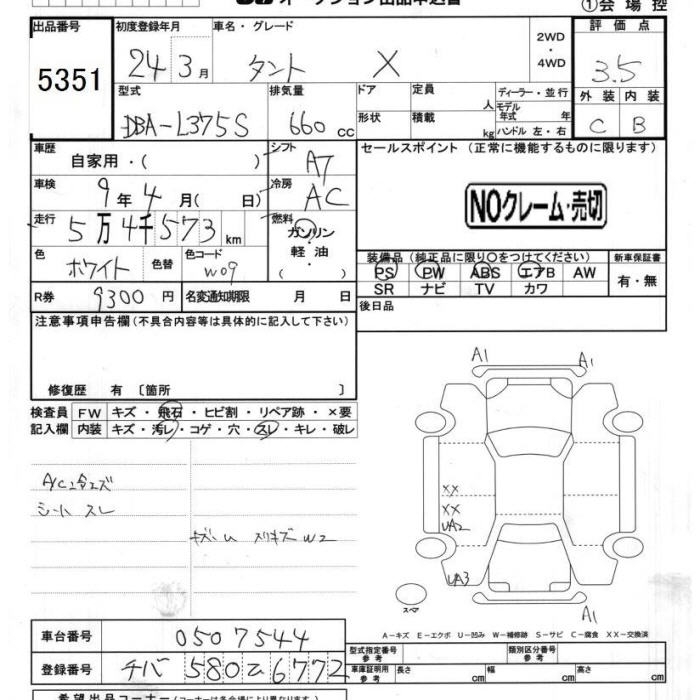 オークション出品申込書 ①会場控
出品番号 初度登録年月 車名・グレード 2WD・4WD 評価点
5351 24年3月 タント X 3.5
型式 排気量 ドア 定員 人 ディーラー・並行 外装 内装
DBA-L375S 660cc 形状 積載 kg モデル年式 年 ハンドル 左・右 C B
車歴 自家用・( ) シフト AT セールスポイント(正常に機能するものに限ります)
車検 9年4月( 日) 冷房 AC
NOクレーム・売切
走行 5万4千573km 燃料 ガソリン・軽油・
色 ホワイト 色替 色コード W09
装備品(純正品に限り○をつけてください) 新車保証書
PS PW ABS エアB AW 有・無
SR ナビ TV カワ
R券 9300円 名変通知期限 月 日 後日品
注意事項申告欄(不具合内容等は具体的に記入して下さい)
修復歴 有〔箇所 〕
検査員 FW キズ・飛石・ヒビ割・リペア跡・×要
記入欄 内装 キズ・汚レ・コゲ・穴・スレ・キレ・破レ
シート スレ
A1 A1
XX
XX
UA2
UA3
A1
スペア
A-キズ E-エクボ U-凹み W-補修跡 S-サビ C-腐食 XX-交換済
車台番号 0507544
型式指定番号 参考 類別区分番号 参考
登録番号 チバ 580 6772
車庫証明用 参考 長さ cm 幅 cm 高さ cm
希望出品コーナー(コーナーは各会場により異なります)